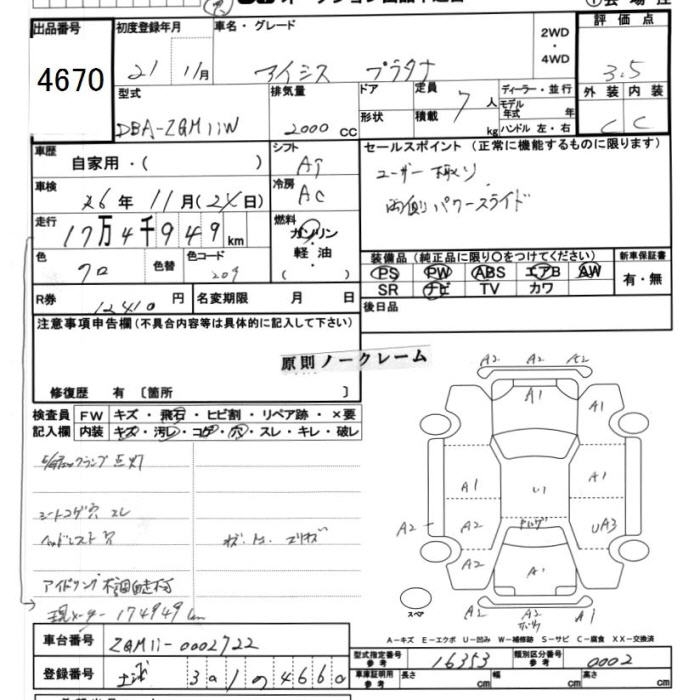 出品番号 初度登録年月 車名・グレード 2WD・4WD 評価点
4670 21 11月 アイシス プラタナ 3.5
型式 排気量 ドア 定員 7人 ディーラー・並行 外装 内装
DBA-ZGM11W 2000cc 形状 積載 kg モデル年式 年 ハンドル 左・右 C C
車歴 自家用・( ) シフト AT セールスポイント(正常に機能するものに限ります)
車検 26年11月(24日) 冷房 AC ユーザー下取り
両側パワースライド
走行 17万4千949km 燃料 ガソリン・軽油・( )
装備品(純正品に限り○をつけてください) 新車保証書
色 クロ 色替 色コード 209 PS PW ABS エアB AW 有・無
SR ナビ TV カワ
R券 12410円 名変期限 月 日 後日品
注意事項申告欄(不具合内容等は具体的に記入して下さい)
原則ノークレーム
修復歴 有〔箇所 〕
検査員 FW キズ・飛石・ヒビ割・リペア跡・×要
記入欄 内装 キズ・汚レ・コゲ・穴・スレ・キレ・破レ
点灯
シートコゲ穴 スレ
ヘッドレスト穴
アイドリング不調自走不可
現メーター 174949km
A2 A2 A2
A1 A1
A1 A1
A2 A2 UA3
A2 A1
A2 A2 A1
スペア
A-キズ E-エクボ U-凹み W-補修跡 S-サビ C-腐食 XX-交換済
車台番号 ZGM11-0002722
型式指定番号 参考 16353 類別区分番号 参考 0002
登録番号 3 4660
車庫証明用 参考 長さ cm 幅 cm 高さ cm